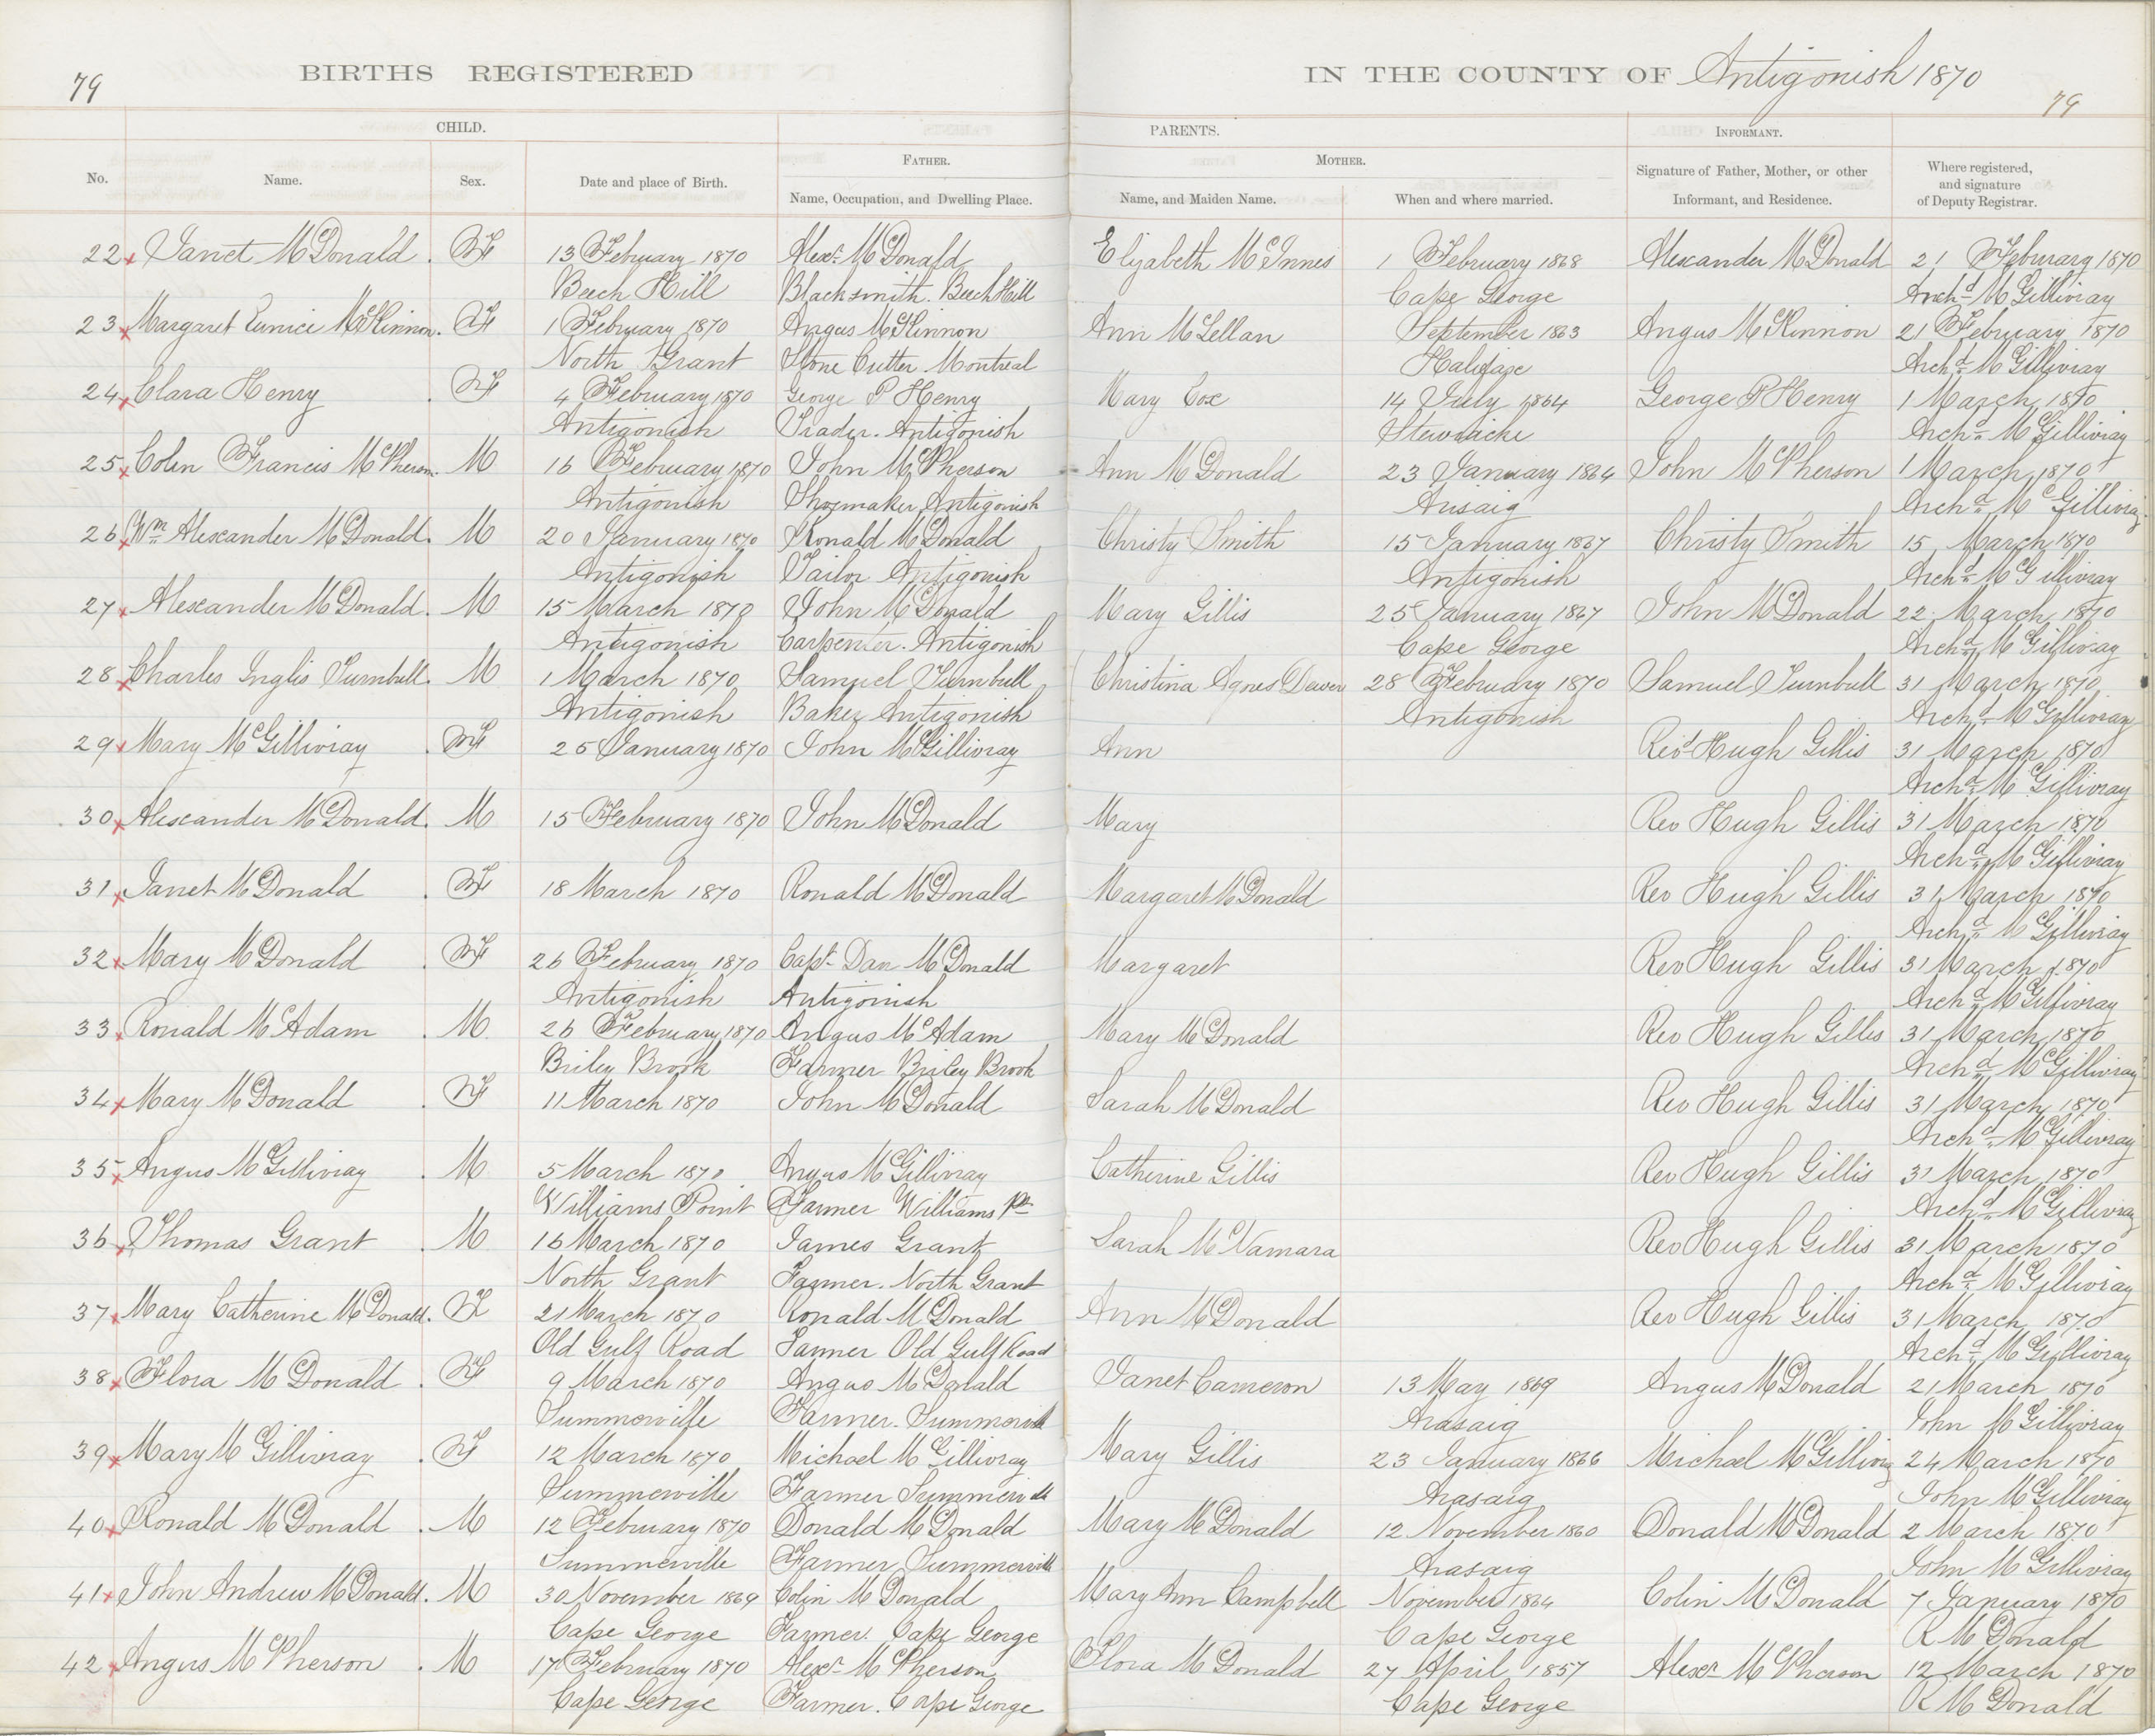 79
BIRTHS REGISTERED
IN THE COUNTY OF Antigonish 1870
79
CHILD.
PARENTS.
INFORMANT.
No.
Name.
Sex.
Date and place of Birth.
FATHER.
Name, Occupation, and Dwelling Place.
MOTHER.
Name, and Maiden Name.
When and where married.
Signature of Father, Mother, or other
Informant, and Residence.
Where registered,
and signature
of Deputy Registrar.
22 Janet McDonald F 13 February 1870 Alexr. McDonald Elizabeth McInnes 1 February 1868 Alexander McDonald 21 February 1870
Beech Hill Blacksmith. Beech Hill Cape George Archd McGillivray
23 Margaret Eunice McKinnon. F 1 February 1870 Angus McKinnon Ann McLellan September 1863 Angus McKinnon 21 February 1870
North Grant Stone Cutter Montreal Halifax Archd McGillivray
24 Clara Henry F 4 February 1870 George P Henry Mary Cox 14 July 1864 George P Henry 1 March 1870
Antigonish Trader. Antigonish Stewiacke Archd McGillivray
25 Colin Francis McPherson. M 16 February 1870 John McPherson Ann McDonald 23 January 1864 John McPherson 1 March 1870
Antigonish Shoemaker Antigonish Arisaig Archd McGillivray
26 Wm Alexander McDonald. M 20 January 1870 Ronald McDonald Christy Smith 15 January 1867 Christy Smith 15 March 1870
Antigonish Tailor Antigonish Antigonish Archd McGillivray
27 Alexander McDonald. M 15 March 1870 John McDonald Mary Gillis 25 January 1867 John McDonald 22 March 1870
Antigonish Carpenter. Antigonish Cape George Archd McGillivray
28 Charles Inglis Turnbull. M 1 March 1870 Samuel Turnbull Christina Agnes Dewer 28 February 1870 Samuel Turnbull 31 March 1870
Antigonish Baker Antigonish Antigonish Archd McGillivray
29 Mary McGillivray F 25 January 1870 John McGillivray Ann Revd Hugh Gillis 31 March 1870
Archd McGillivray
30 Alexander McDonald. M 15 February 1870 John McDonald Mary Rev Hugh Gillis 31 March 1870
Archd McGillivray
31 Janet McDonald F 18 March 1870 Ronald McDonald Margaret McDonald Rev Hugh Gillis 31 March 1870
Archd McGillivray
32 Mary McDonald F 26 February 1870 Capt. Dan McDonald Margaret Rev Hugh Gillis 31 March 1870
Antigonish Antigonish Archd McGillivray
33 Ronald McAdam M 26 February 1870 Angus McAdam Mary McDonald Rev Hugh Gillis 31 March 1870
Briley Brook Farmer Briley Brook Archd McGillivray
34 Mary McDonald F 11 March 1870 John McDonald Sarah McDonald Rev Hugh Gillis 31 March 1870
Archd McGillivray
35 Angus McGillivray M 5 March 1870 Angus McGillivray Catherine Gillis Rev Hugh Gillis 31 March 1870
Williams Point Farmer Williams Pt Archd McGillivray
36 Thomas Grant M 16 March 1870 James Grant Sarah McNamara Rev Hugh Gillis 31 March 1870
North Grant Farmer. North Grant Archd McGillivray
37 Mary Catherine McDonald. F 21 March 1870 Ronald McDonald Ann McDonald Rev Hugh Gillis 31 March 1870
Old Gulf Road Farmer Old Gulf Road Archd McGillivray
38 Flora McDonald F 9 March 1870 Angus McDonald Janet Cameron 13 May 1869 Angus McDonald 21 March 1870
Summerville Farmer. Summerville Arasaig John McGillivray
39 Mary McGillivray F 12 March 1870 Michael McGillivray Mary Gillis 23 January 1866 Michael McGillivray 24 March 1870
Summerville Farmer Summerville Arasaig John McGillivray
40 Ronald McDonald M 12 February 1870 Donald McDonald Mary McDonald 12 November 1860 Donald McDonald 2 March 1870
Summerville Farmer Summerville Arasaig John McGillivray
41 John Andrew McDonald. M 30 November 1869 Colin McDonald Mary Ann Campbell November 1864 Colin McDonald 7 January 1870
Cape George Farmer. Cape George Cape George R McDonald
42 Angus McPherson M 17 February 1870 Alexr McPherson Flora McDonald 27 April 1857 Alexr McPherson 12 March 1870
Cape George Farmer. Cape George Cape George R McDonald